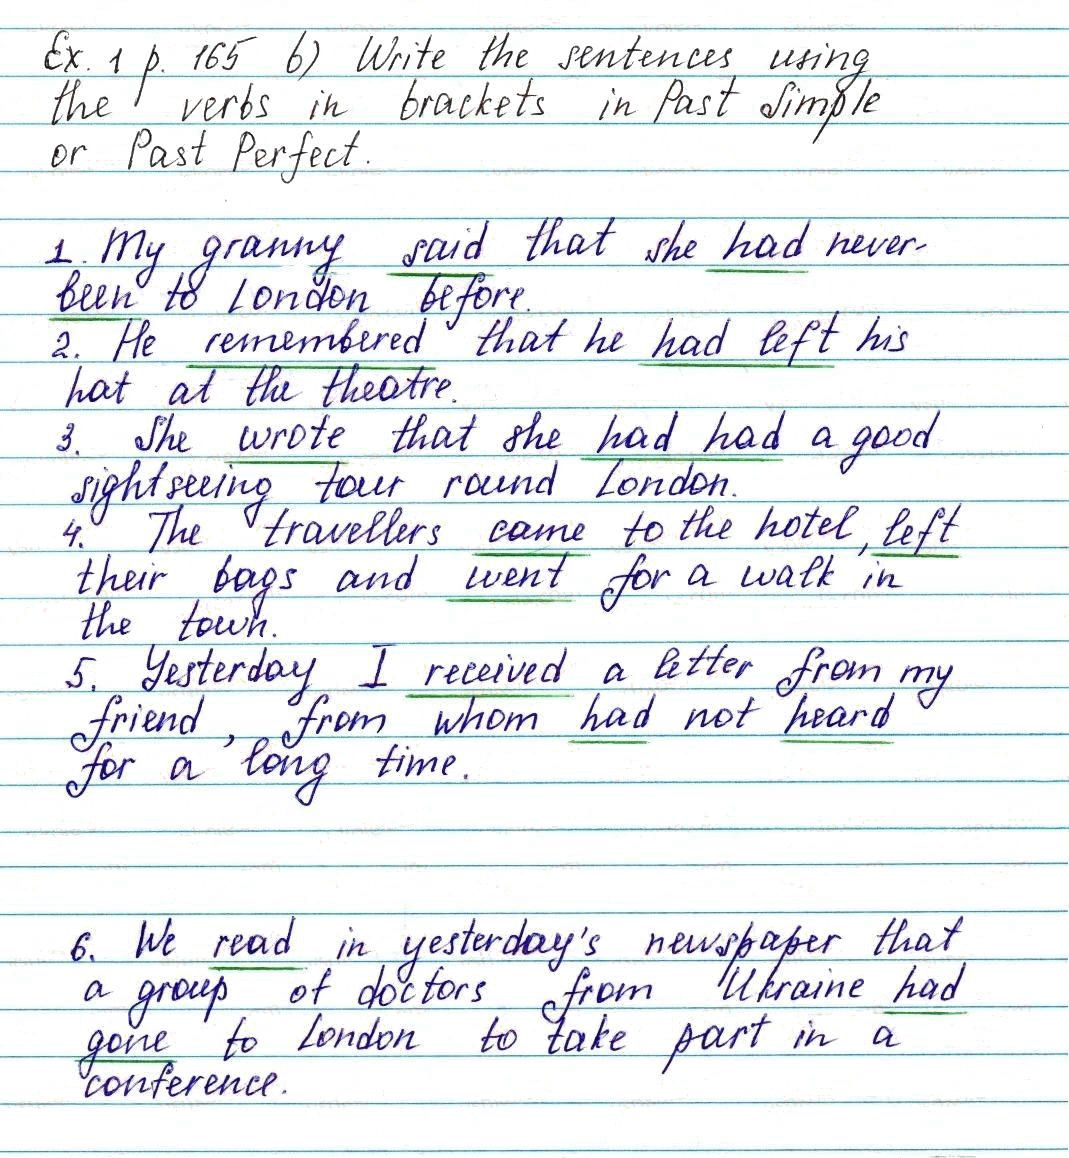 Ex. 1 p. 165 b) Write the sentences using
the verbs in brackets in Past Simple
or Past Perfect.
1. My granny said that she had never
been to London before.
2. He remembered that he had left his
hat at the theatre.
3. She wrote that she had had a good
sightseeing tour round London.
4. The travellers came to the hotel, left
their bags and went for a walk in
the town.
5. Yesterday I received a letter from my
friend, from whom had not heard
for a long time.
6. We read in yesterday's newspaper that
a group of doctors from Ukraine had
gone to London to take part in a
conference.